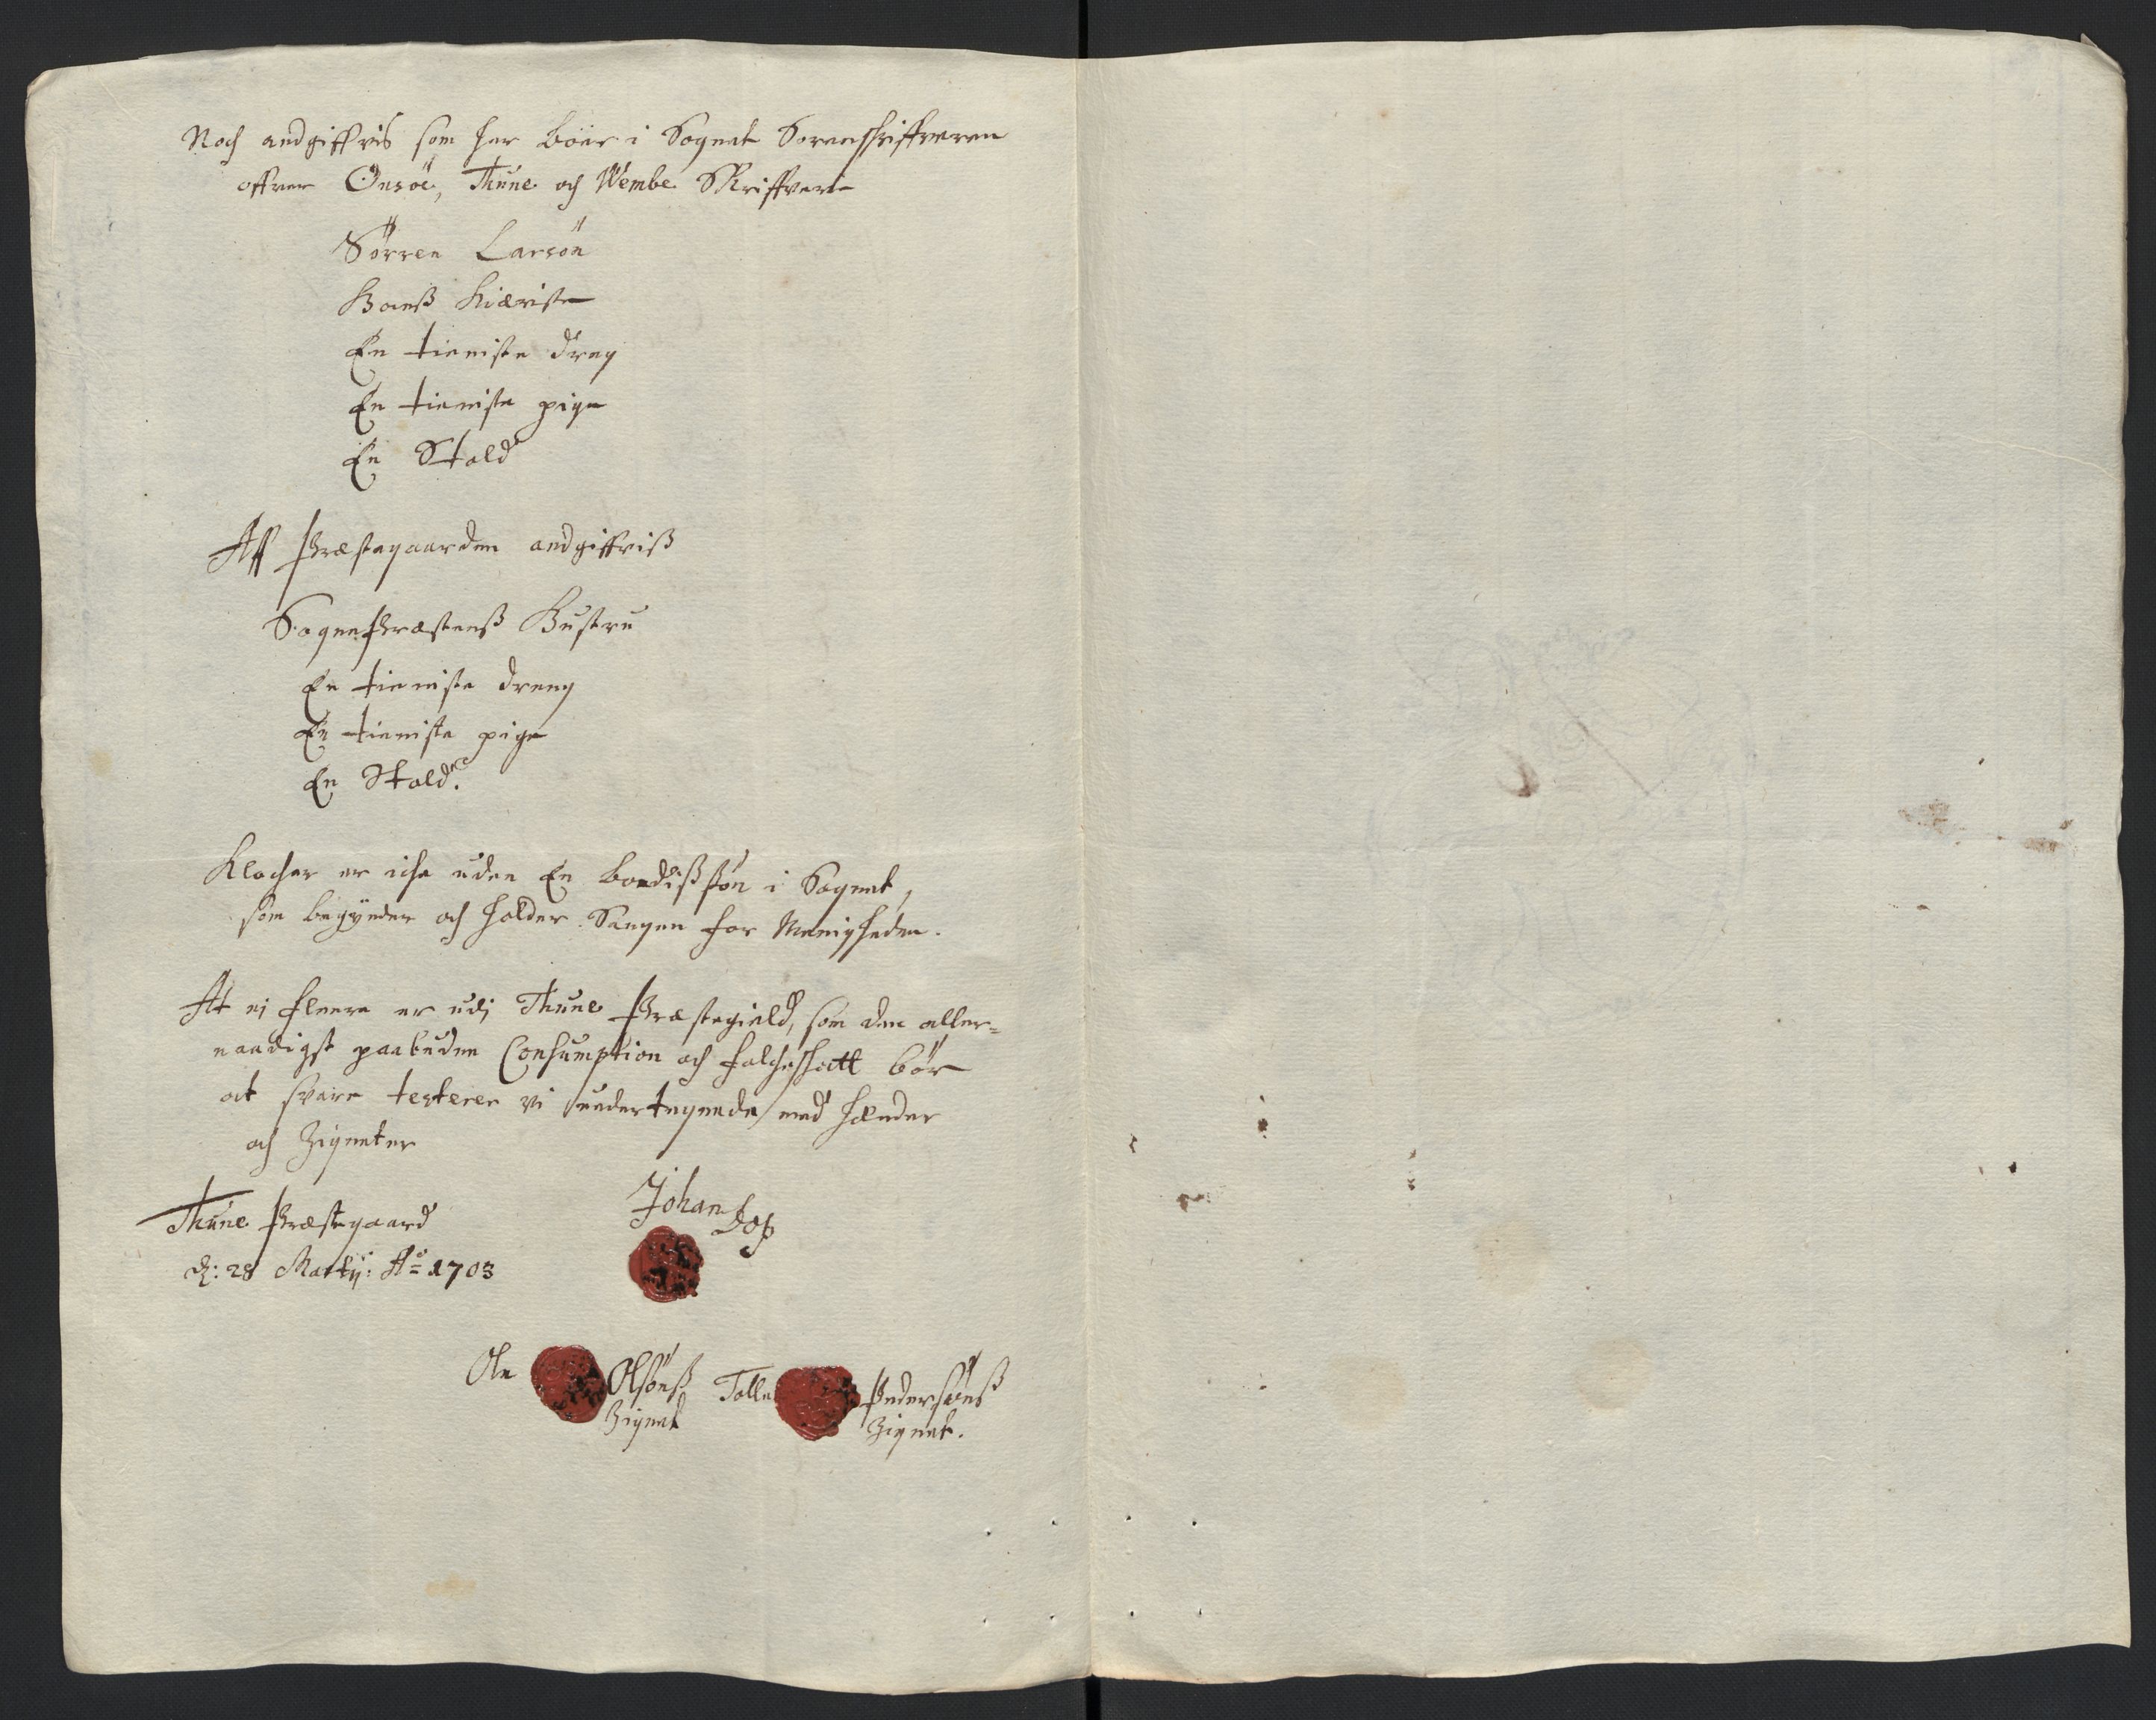 Noch andgiffvis som her böer i Sognet Sorenschriffveren
offver Onsöe, Thune och Wembe Skriffverie
Sörren Larsön
Hanß Kiæriste
En tieniste dreng
En tieniste pige
En Stald
Aff Præstegaarden andgiffviß
SognePræstenß Hustru
En tieniste dreng
En tieniste pige
En Stald.
Klocher er iche uden En bondißsön i Sognet,
som begynder och holder Sangen for Menigheden.
At ej fleere er udj Thune Præstegield, som den aller-
naadigst paabudne Consumption och folcheskatt bör
at svare testerer vi undertegnede med hænder
och Zigneter
Thune Præstegaard
d: 28 Martij: Ao 1703
Johan
Ole Olsönß Tolle Pedersönß
Zignet Zignet.